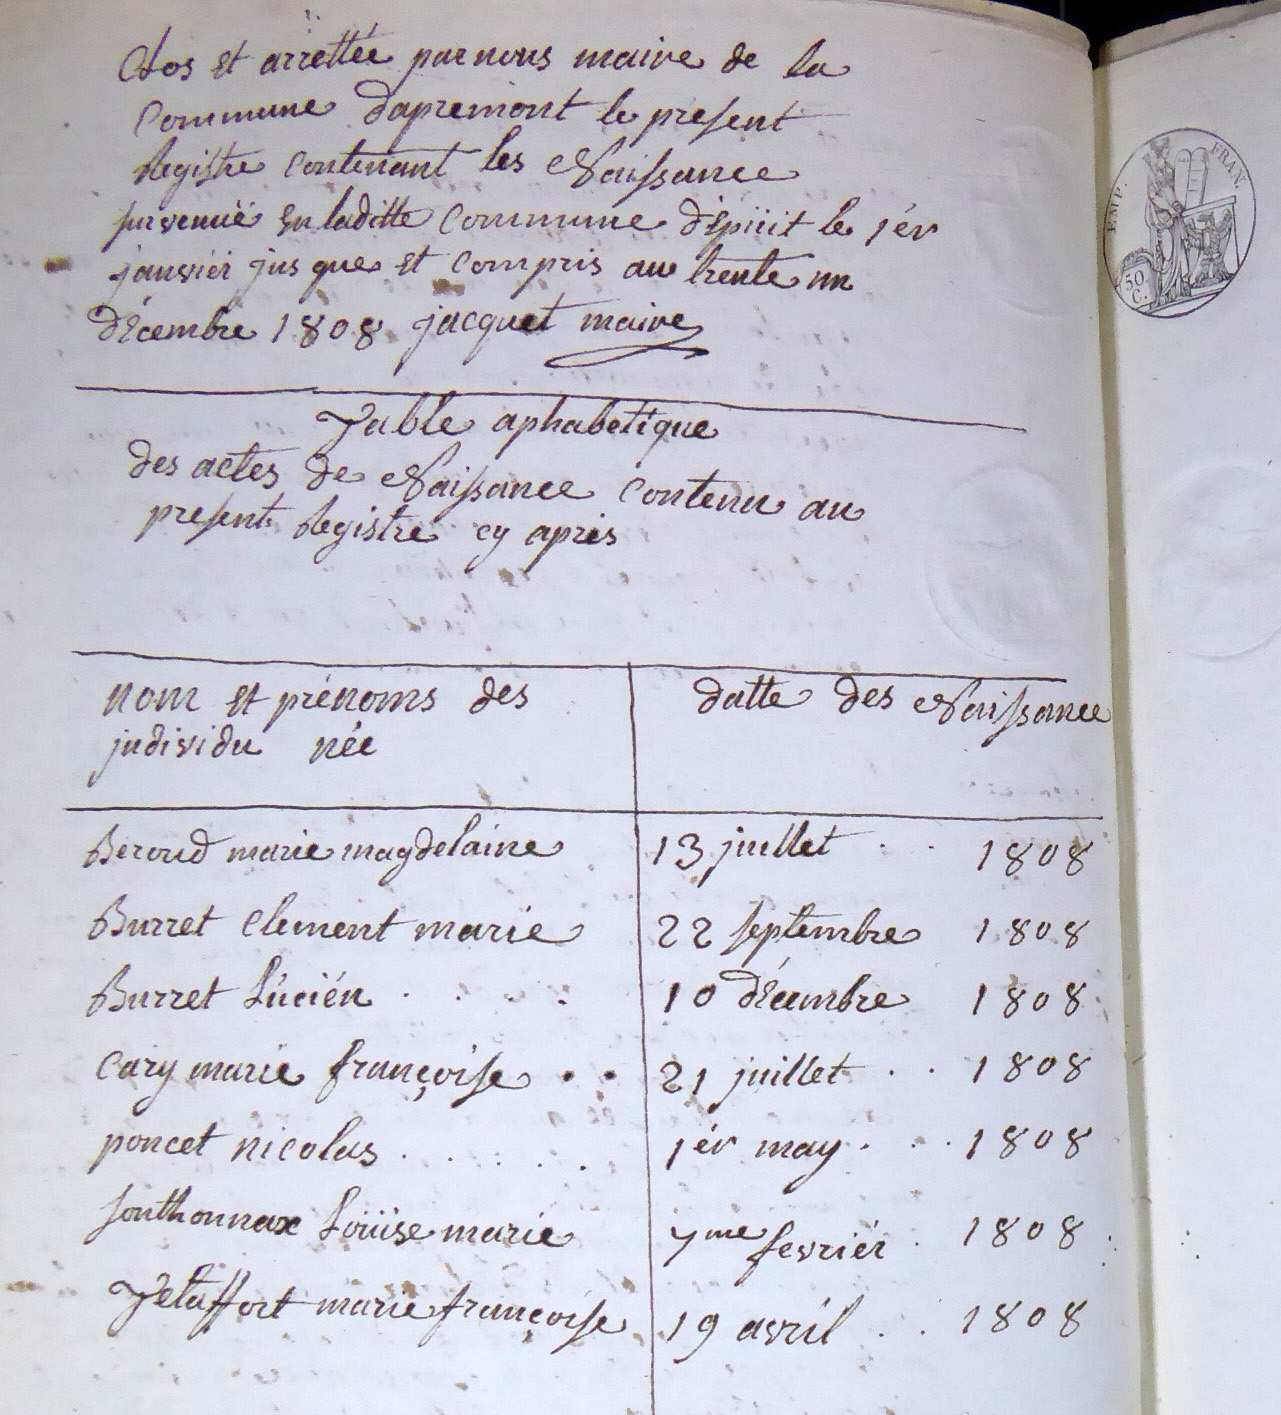 Clos et arrettée par nous maire de la
Commune d'apremont le present
Registre contenant les Naissance
survenuë en laditte Commune dépüit le 1ér
janviér jusque et compris au trente un
décembre 1808 jacquet maire
Table aphabetique
des actes de Naissance contenu au
present Registre cy aprés
nom et prénoms des
individu née
datte des Naissance
Beroud marie magdelaine 13 juillet . . 1808
Burret Clement marie 22 septembre 1808
Burret Lucién . . . . 10 décembre 1808
Cary marie françoise . . 21 juillet . . 1808
poncet nicolas . . . . . . 1ér may . . . 1808
Sonthonnax Loüise marie 7me fevriér . 1808
Tetaffort marie françoise 19 avril . . 1808
EMP. FRAN.
50
C.